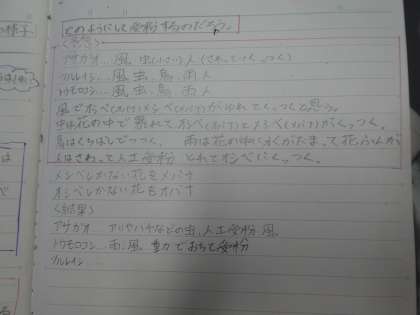 どのようにして受粉するのだろう。
<予想>
アサガオ…風、虫(小さい)、人(さわって、くっつく)
ツルレイシ…風、虫、鳥、雨、人
トウモロコシ…風、虫、鳥、雨、人
風でオシベ(おばな)メシベ(めばな)がゆれてくっつくと思う。
虫は花の中で暴れてオシベ(おばな)とメシベ(めばな)がくっつく。
鳥はくちばしでつっつく。 雨は花の中に水がたまって花ふんが
人はさわって人工受粉 とれてオシベにくっつく。
メシベしかない花をメバナ
オシベしかない花をオバナ
<結果>
アサガオ アリやハチなどの虫、人工受粉、風、
トウモロコシ…雨、風、重力でおちて受粉
ツルレイシ…
様子